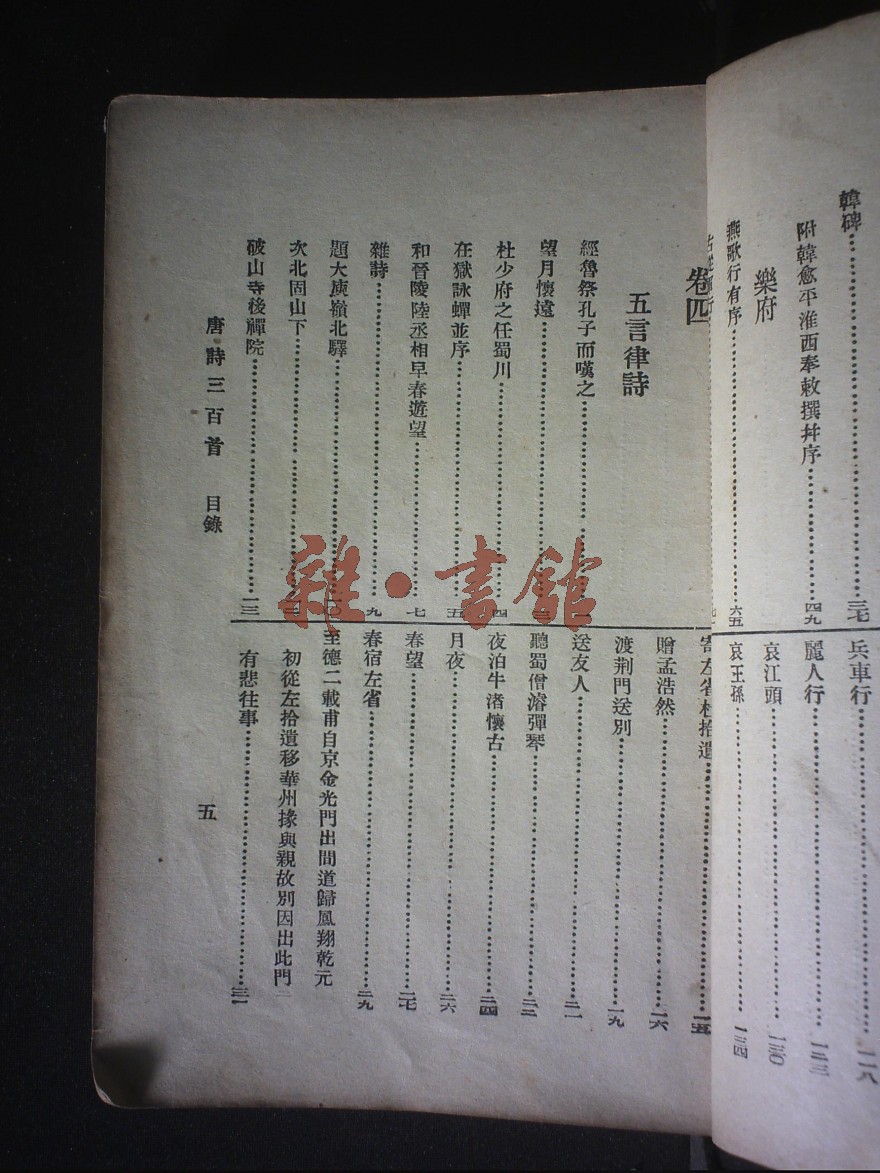 韓碑……三七
附韓愈平淮西奉敕撰并序……四九
樂府
燕歌行有序……六五
兵車行……一一八
麗人行……一二三
哀江頭……一三〇
哀王孫……一三四
卷四
五言律詩
經魯祭孔子而嘆之……
望月懷遠……
杜少府之任蜀川……四
在獄詠蟬並序……五
和晉陵陸丞相早春遊望……七
雜詩……九
題大庾嶺北驛……一〇
次北固山下……
破山寺後禪院……一三
寄左省杜拾遺……一五
贈孟浩然……一六
渡荆門送別……一九
送友人……二一
聽蜀僧濬彈琴……二二
夜泊牛渚懷古……二四
月夜……二六
春望……二七
春宿左省……二九
至德二載甫自京金光門出間道歸鳳翔乾元
初從左拾遺移華州掾與親故別因出此門
有悲往事……三一
唐詩三百首 目錄
五
雜·書館